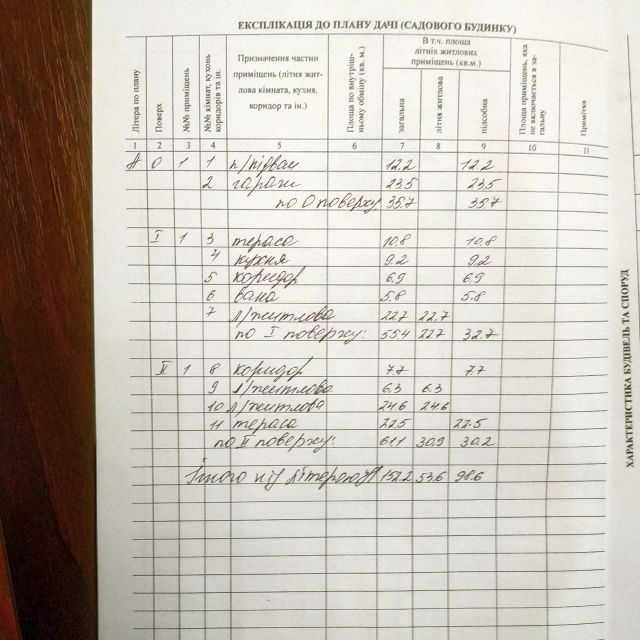 ЕКСПЛІКАЦІЯ ДО ПЛАНУ ДАЧІ (САДОВОГО БУДИНКУ)
Літера по плану
Поверх
№№ приміщень
№№ кімнат, кухонь коридорів та ін.
Призначення частин приміщень (літня житлова кімната, кухня, коридор та ін.)
Площа по внутрішньому обміну (кв. м.)
В т.ч. площа літніх житлових приміщень (кв.м.)
загальна
літня житлова
підсобна
Площа приміщень, яка не включається в загальну
Примітка
1 2 3 4 5 6 7 8 9 10 11
А 0 1 1 п/підвал 12.2 12.2
2 гараж 23.5 23.5
по 0 поверху 35.7 35.7
I 1 3 тераса 10.8 10.8
4 кухня 9.2 9.2
5 коридор 6.9 6.9
6 вана 5.8 5.8
7 л/житлова 22.7 22.7
по I поверху: 55.4 22.7 32.7
II 1 8 коридор 7.7 7.7
9 л/житлова 6.3 6.3
10 л/житлова 24.6 24.6
11 тераса 22.5 22.5
по II поверху: 61.1 30.9 30.2
Іного під літерою А 152.2 53.6 98.6
ХАРАКТЕРИСТИКА БУДІВЕЛЬ ТА СПОРУД